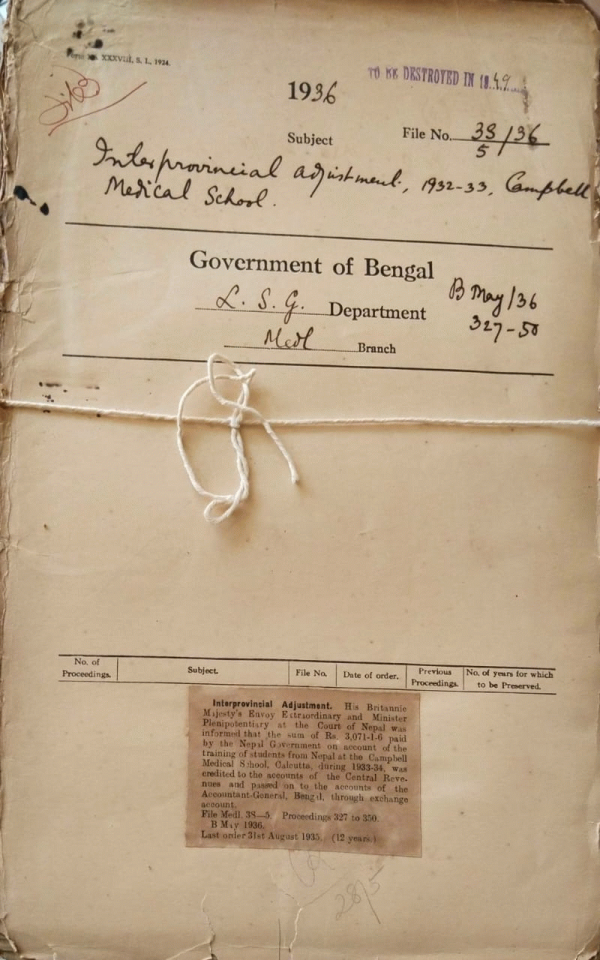 Form No. XXXVIII, S. I., 1934.
TO BE DESTROYED IN 1949
1936
Subject File No. 3S/36
5
Interprovincial adjustment, 1932-33, Campbell
Medical School.
Government of Bengal
L. S. G. Department
B May/36
327-50
Medl Branch
No. of Proceedings. Subject. File No. Date of order. Previous Proceedings. No. of years for which to be Preserved.
Interprovincial Adjustment. His Britannic
Majesty's Envoy Extraordinary and Minister
Plenipotentiary at the Court of Nepal was
informed that the sum of Rs. 3,071-1-6 paid
by the Nepal Government on account of the
training of students from Nepal at the Campbell
Medical School, Calcutta, during 1933-34, was
credited to the accounts of the Central Reve-
nues and passed on to the accounts of the
Accountant-General, Bengal, through exchange
account.
File Medl. 3S—5. Proceedings 327 to 350.
B May 1936.
Last order 31st August 1935. (12 years.)
28/5